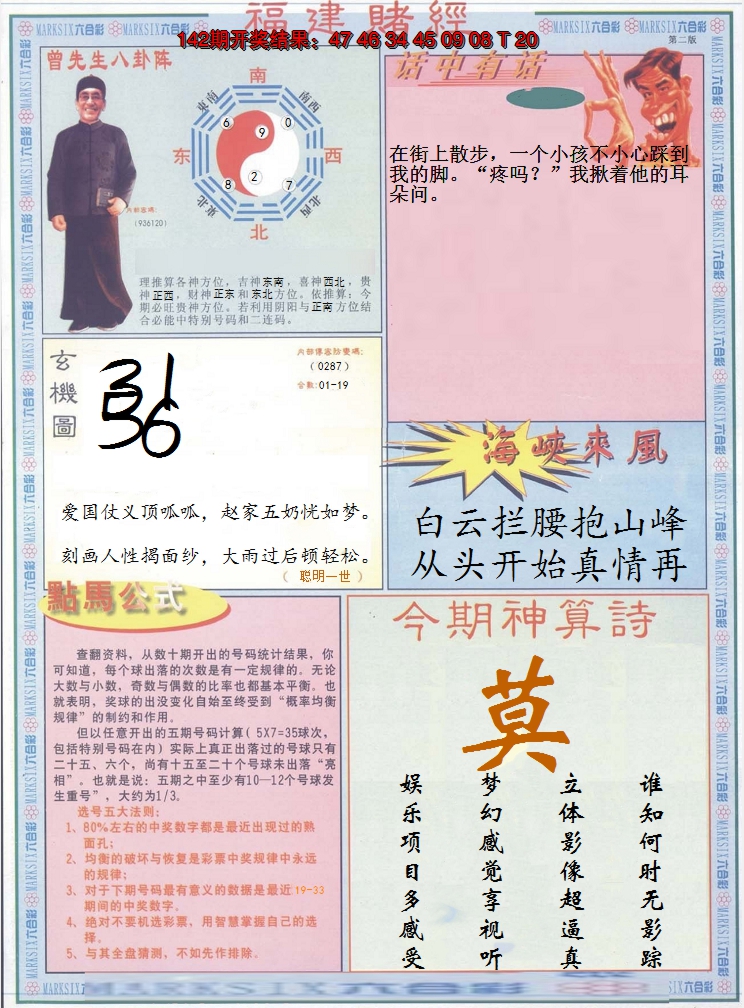 福建賭經
142期开奖结果：47 46 34 45 09 08 T 20
第二版
曾先生八卦阵
南
东南
南西
6
9
0
东
西
8
2
7
東北
北西
北
内部密碼：
(936120)
理推算各神方位，吉神东南，喜神西北，贵
神正西，财神正东和东北方位。依推算：今
期必旺贵神方位。若利用阴阳与正南方位结
合必能中特别号码和二连码。
话中有话
在街上散步，一个小孩不小心踩到
我的脚。“疼吗？”我揪着他的耳
朵问。
玄機圖
内部傳密防變碼：
(0287)
合數:01-19
爱国仗义顶呱呱，赵家五奶恍如梦。
刻画人性揭面纱，大雨过后顿轻松。
（ 聪明一世 ）
海峽來風
白云拦腰抱山峰
从头开始真情再
點馬公式
查翻资料，从数十期开出的号码统计结果，你
可知道，每个球出落的次数是有一定规律的。无论
大数与小数，奇数与偶数的比率也都基本平衡。也
就表明，奖球的出没变化自始至终受到“概率均衡
规律”的制约和作用。
但以任意开出的五期号码计算( 5X7=35球次，
包括特别号码在内) 实际上真正出落过的号球只有
二十五、六个，尚有十五至二十个号球未出落“亮
相”。也就是说：五期之中至少有10—12个号球发
生重号”，大约为1/3。
选号五大法则：
1、80%左右的中奖数字都是最近出现过的熟
面孔；
2、均衡的破坏与恢复是彩票中奖规律中永远
的规律；
3、对于下期号码最有意义的数据是最近19-33
期间的中奖数字。
4、绝对不要机选彩票，用智慧掌握自己的选
择。
5、与其全盘猜测，不如先作排除。
今期神算詩
莫
谁知何时无影踪
立体影像超逼真
梦幻感觉享视听
娱乐项目多感受
MARKSIX六合彩